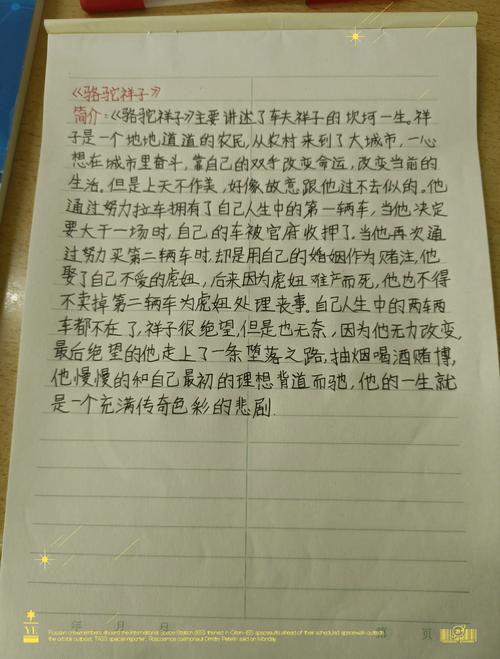 《骆驼祥子》
简介:《骆驼祥子》主要讲述了车夫祥子的坎坷一生。祥
子是一个地地道道的农民,从农村来到了大城市,一心
想在城市里奋斗,靠自己的双手改变命运,改变当前的
生活。但是上天不作美,好像故意跟他过不去似的。他
通过努力拉车拥有了自己人生中的第一辆车,当他决定
要大干一场时,自己的车被官府收押了。当他再次通
过努力买第二辆车时,却是用自己的婚姻作为赌注,他
娶了自己不爱的虎妞,后来因为虎妞难产而死,他也不得
不卖掉第二辆车为虎妞处理丧事。自己人生中的两车两
车都不在了,祥子很绝望,但是也无奈,因为他无力改变,
最后绝望的他走上了一条堕落之路,抽烟喝酒赌博,
他慢慢的和自己最初的理想背道而驰,他的一生就
是一个充满传奇色彩的悲剧.
年 月 日
第 页
YE
Russian crewmembers aboard the International Space Station (ISS) trained in Orlan-ISS spacesuits ahead of their scheduled spacewalk outside
the orbital outpost, TASS special reporter, Roscosmos cosmonaut Dmitry Petelin said on Monday